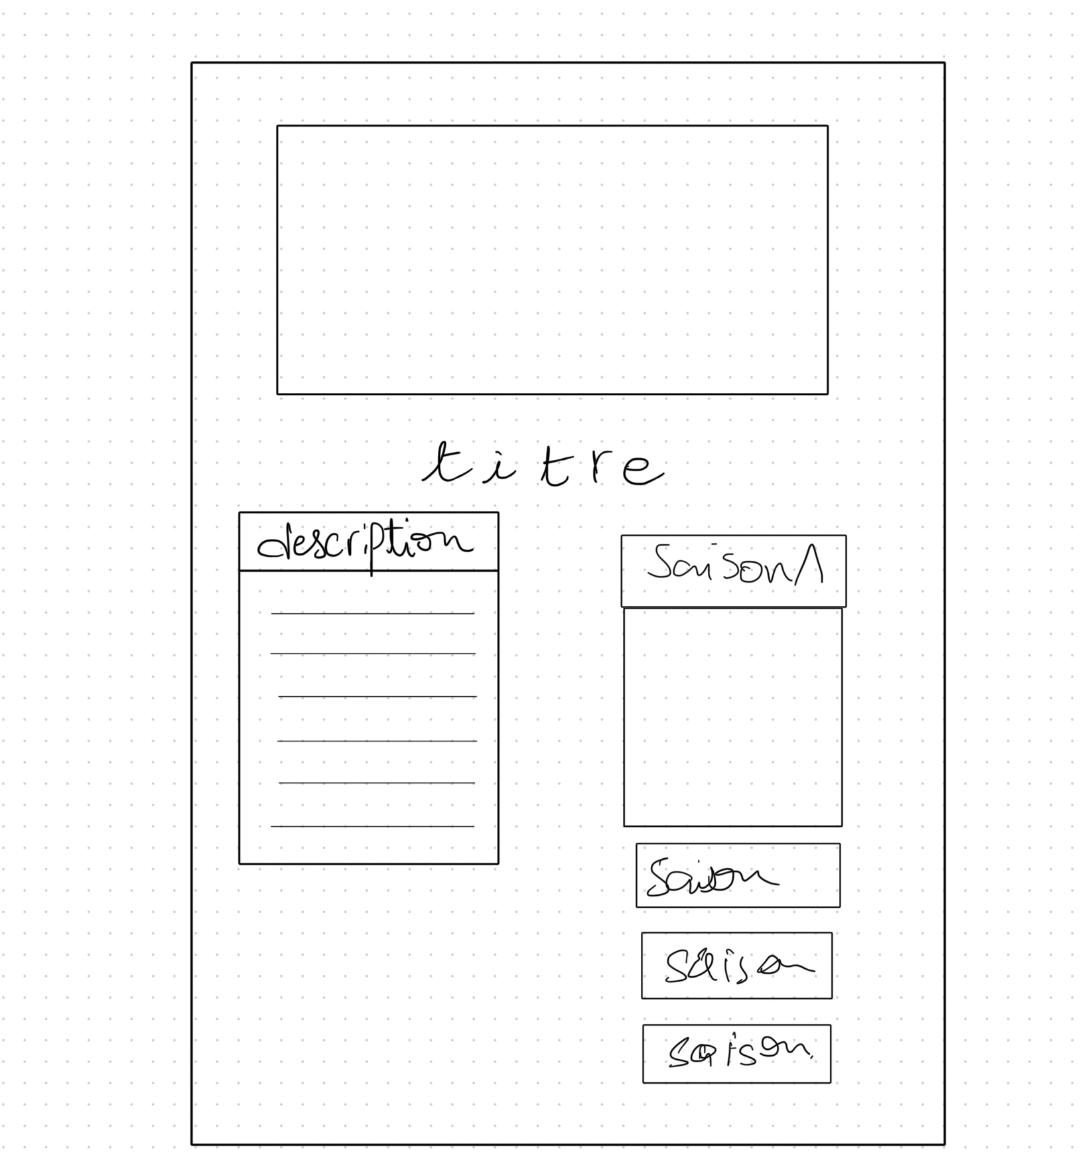 titre
description
Saison 1
Saison
saison
saison